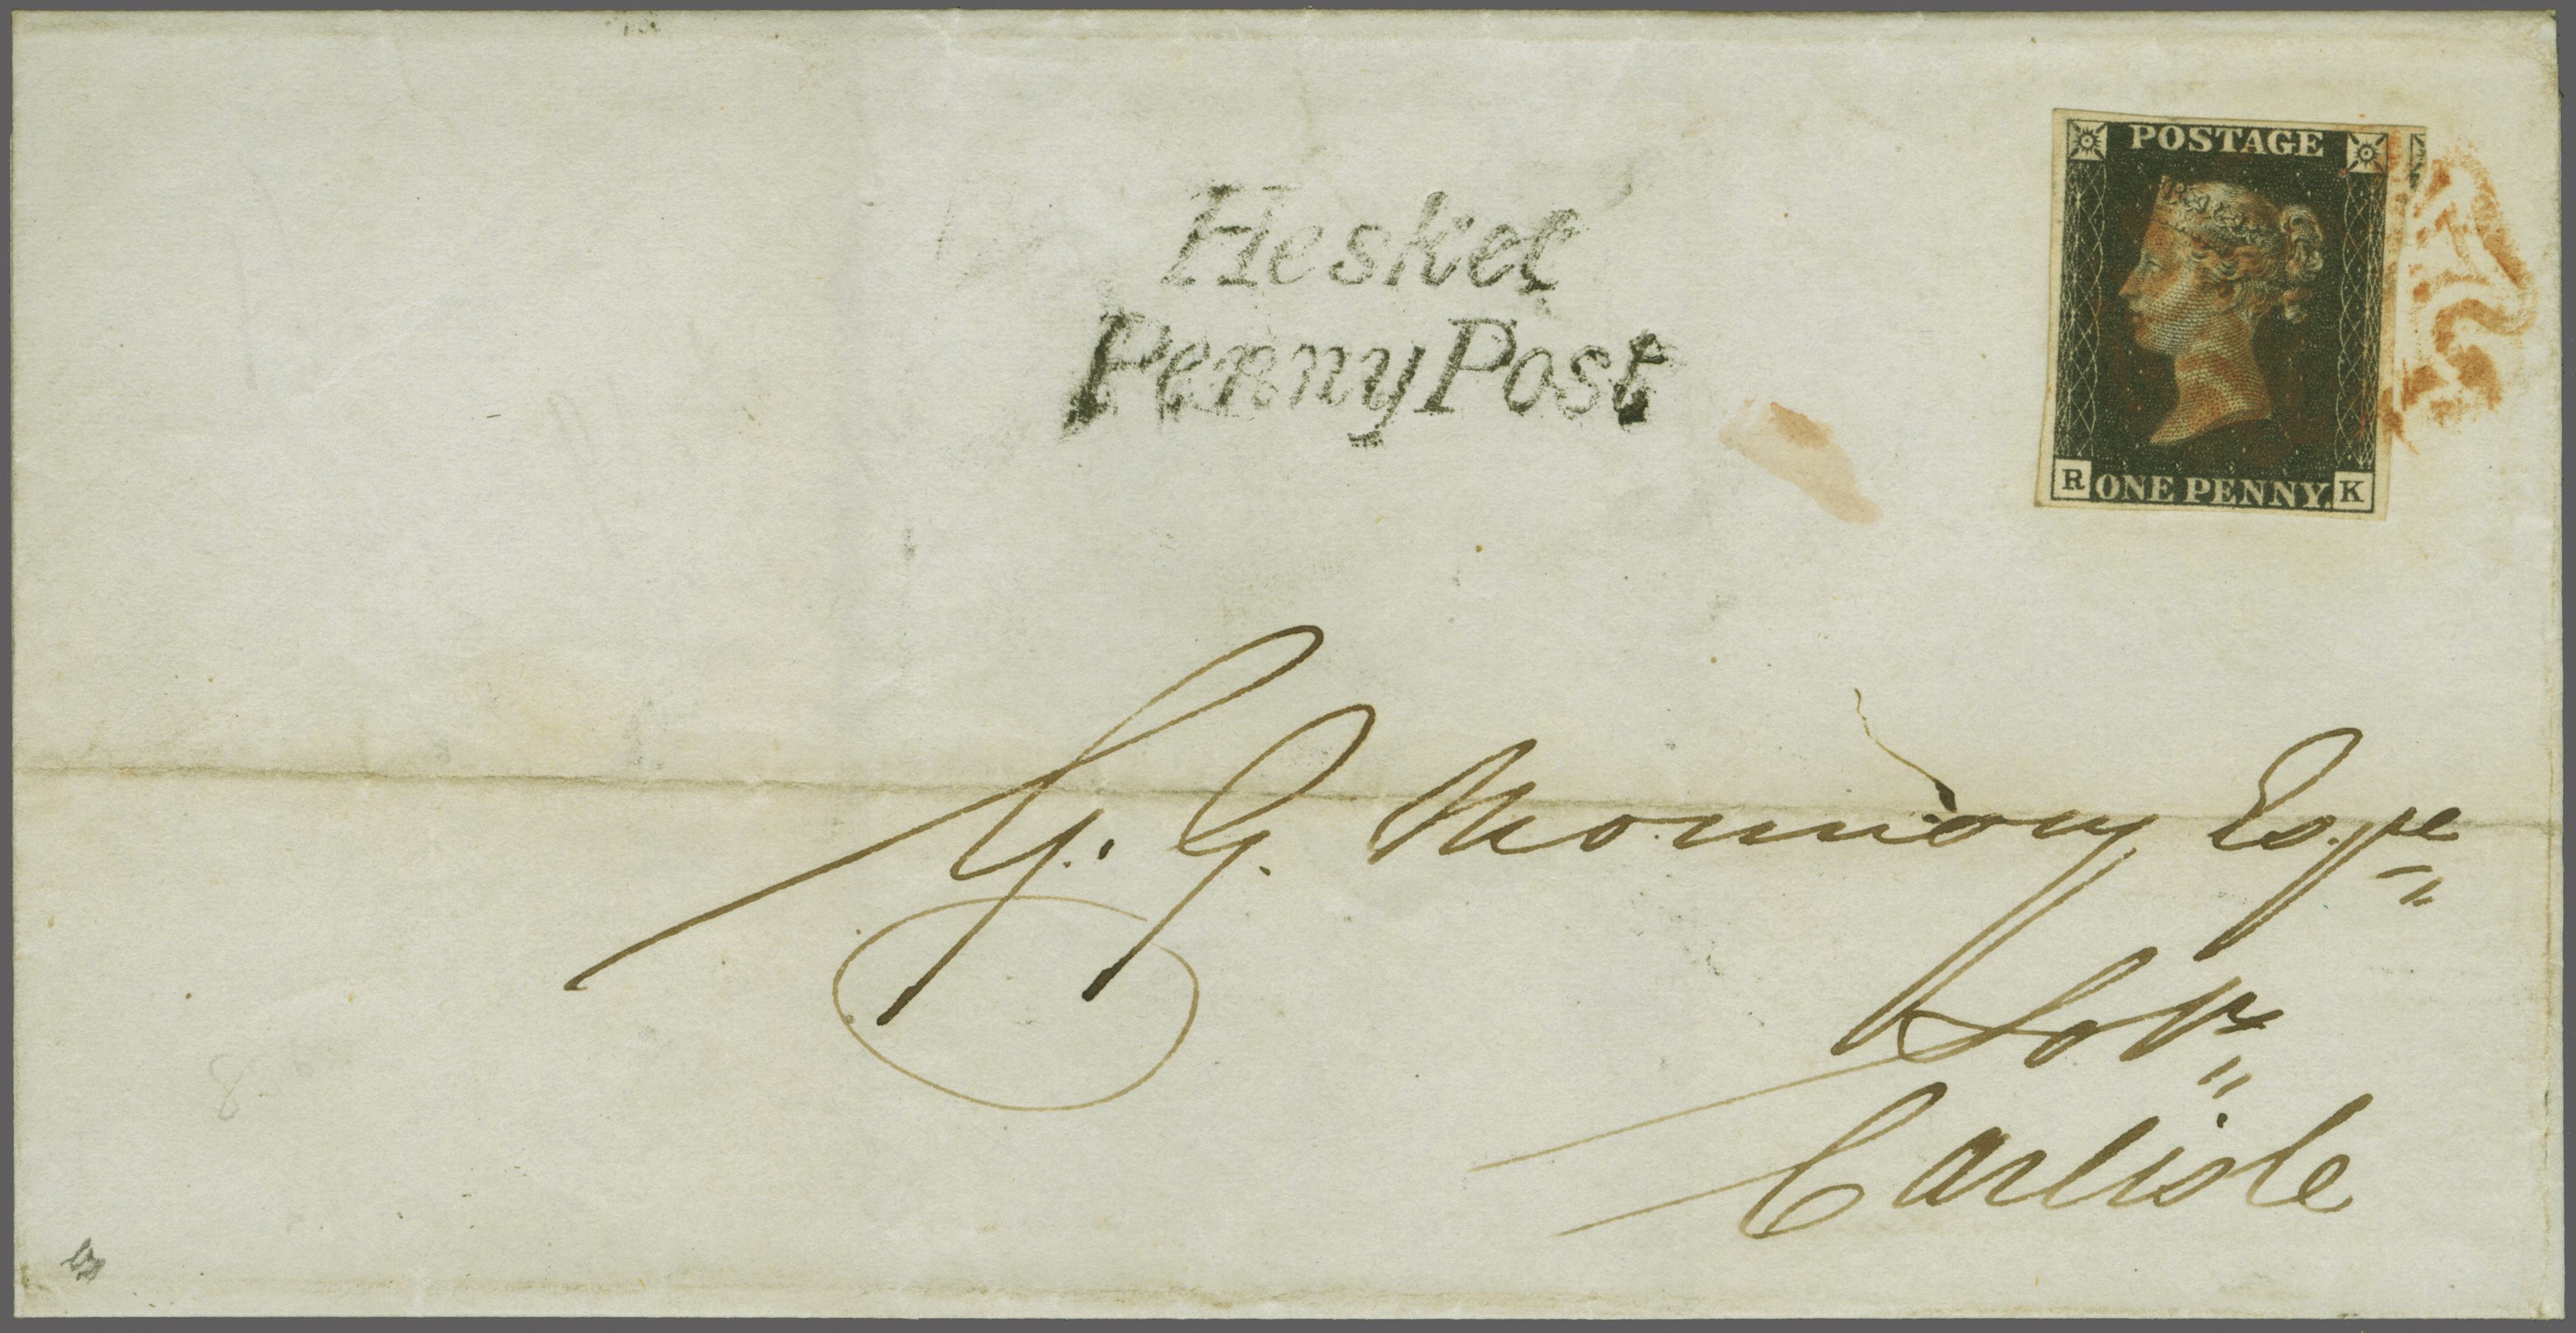 Hesket
Penny Post
POSTAGE
R ONE PENNY. K
G. G. Mounsey Esqre
Solr
Carlisle